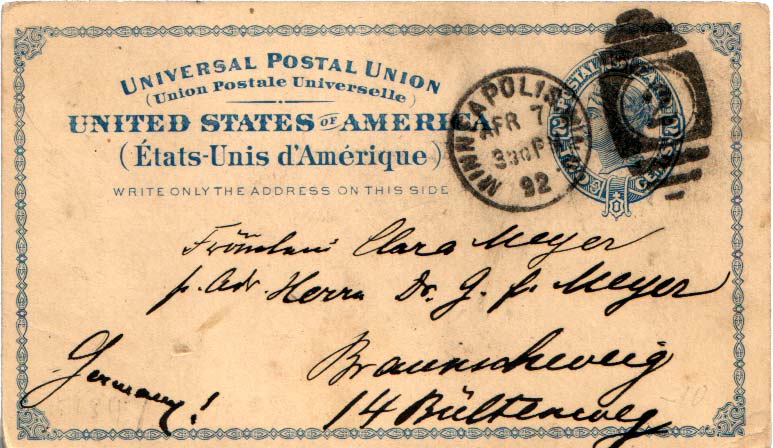 UNIVERSAL POSTAL UNION
(Union Postale Universelle)
UNITED STATES OF AMERICA
(États-Unis d'Amérique)
WRITE ONLY THE ADDRESS ON THIS SIDE
MINNEAPOLIS MINN.
APR 7
3 30 P
92
Fräulein Clara Meyer
p. Adr. Herrn Dr. G. f. Meyer
Braunschweig
14 Bültenweg
Germany!